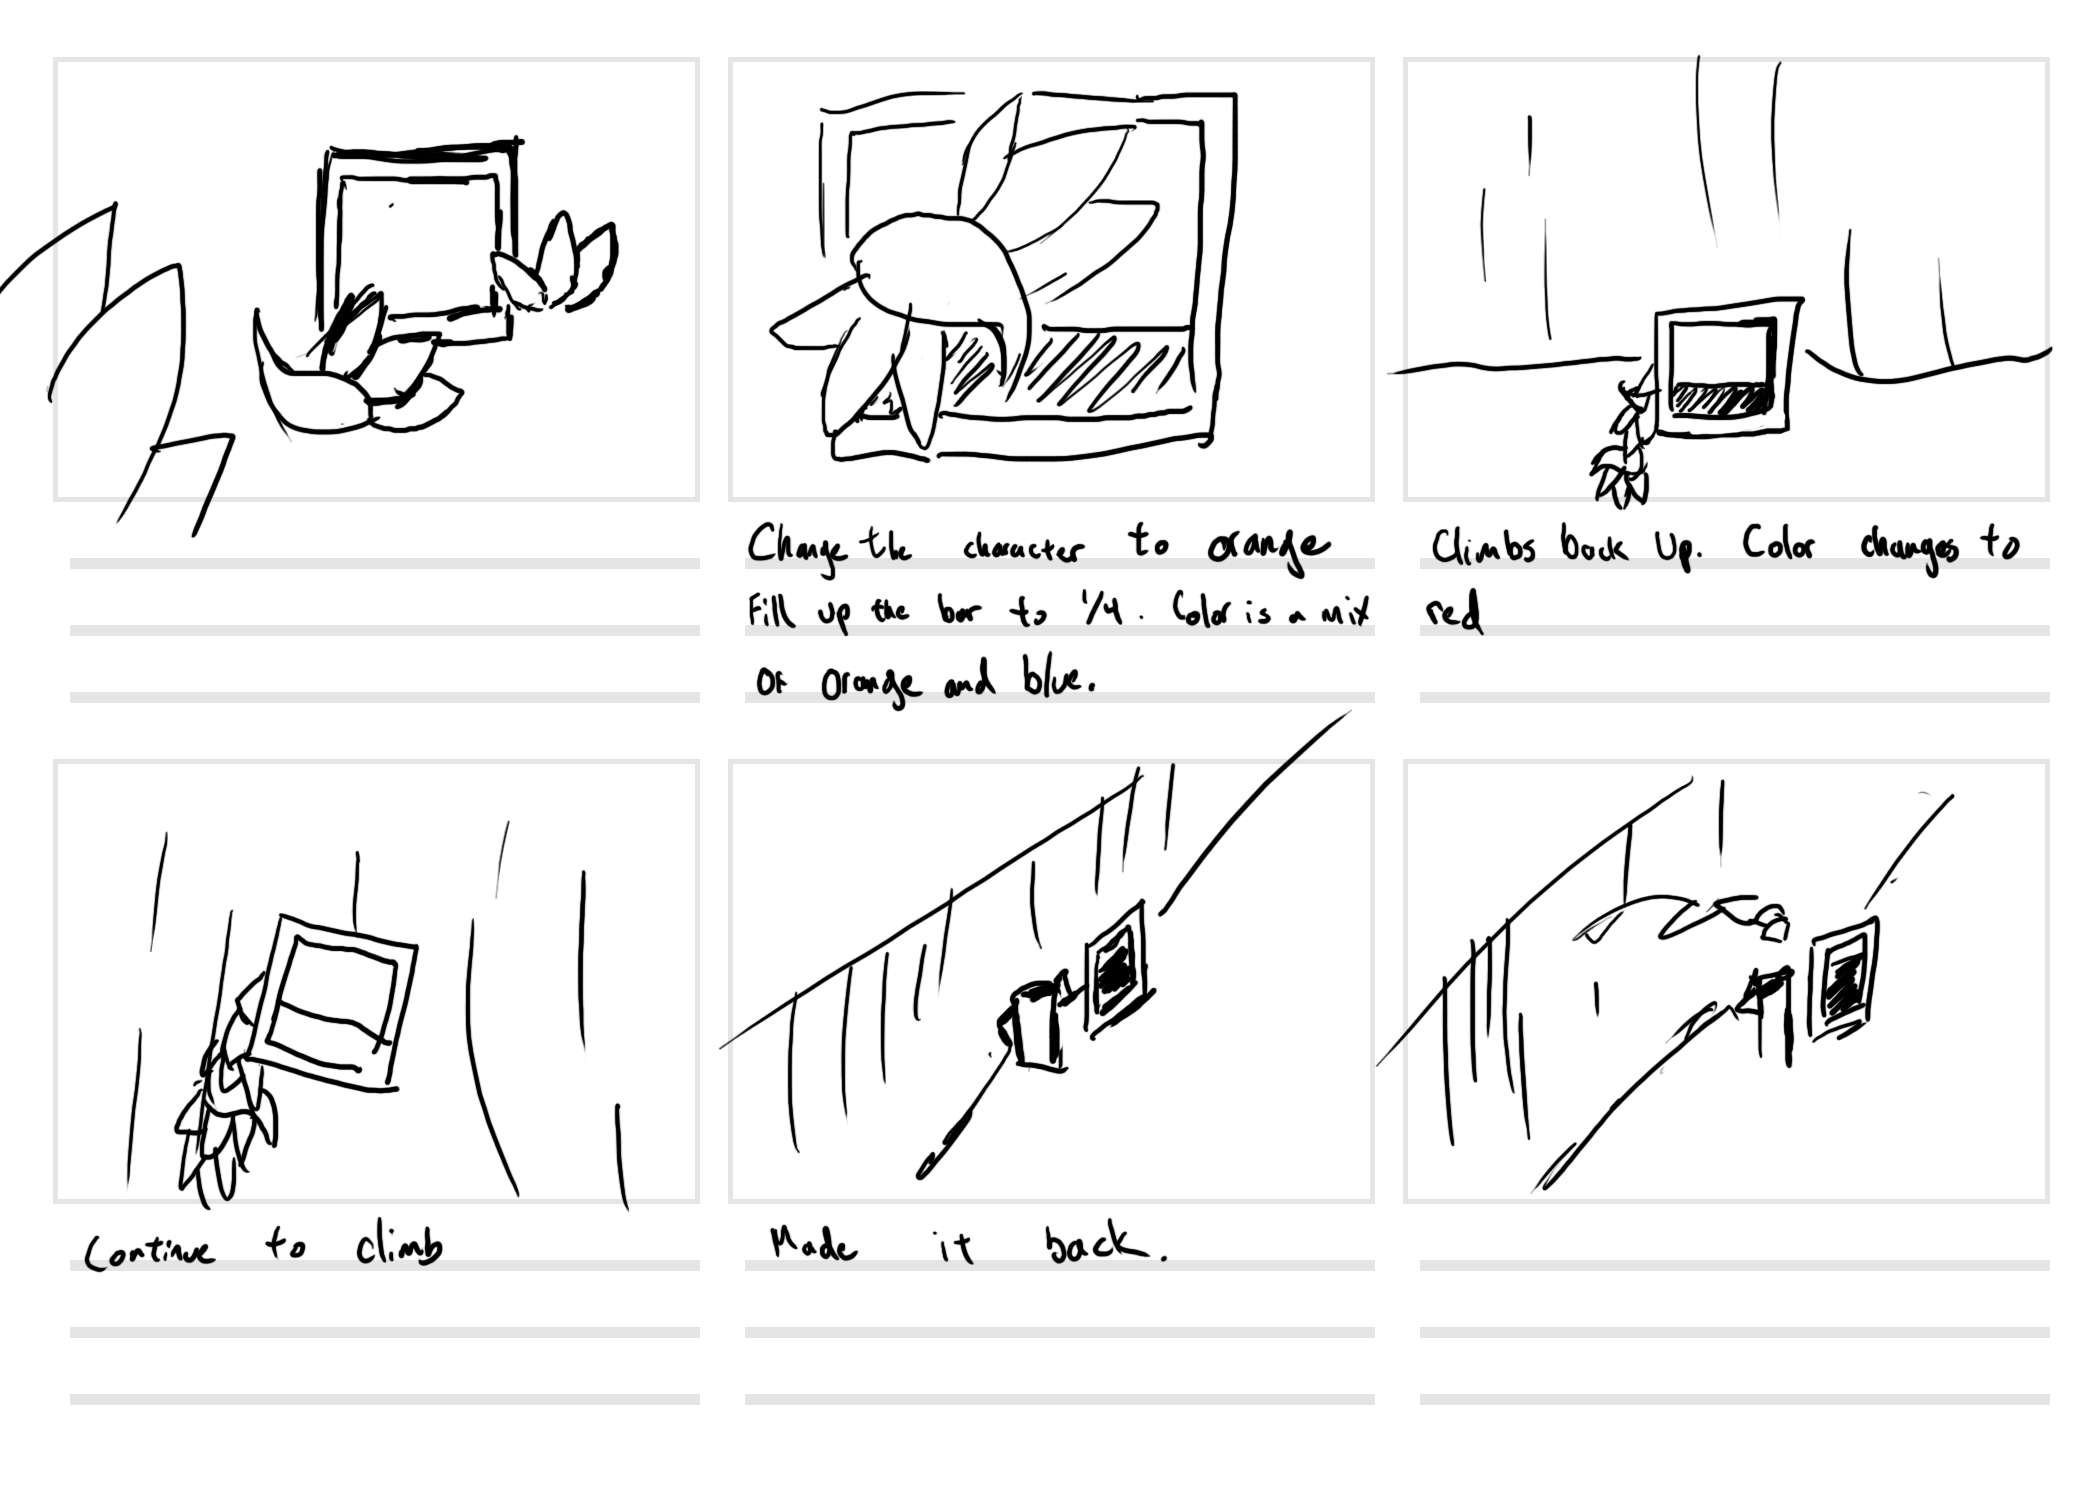 Change the character to orange
Fill up the bar to 1/4. Color is a mix
of orange and blue.
Climbs back Up. Color changes to
red
Continue to climb
Made it back.